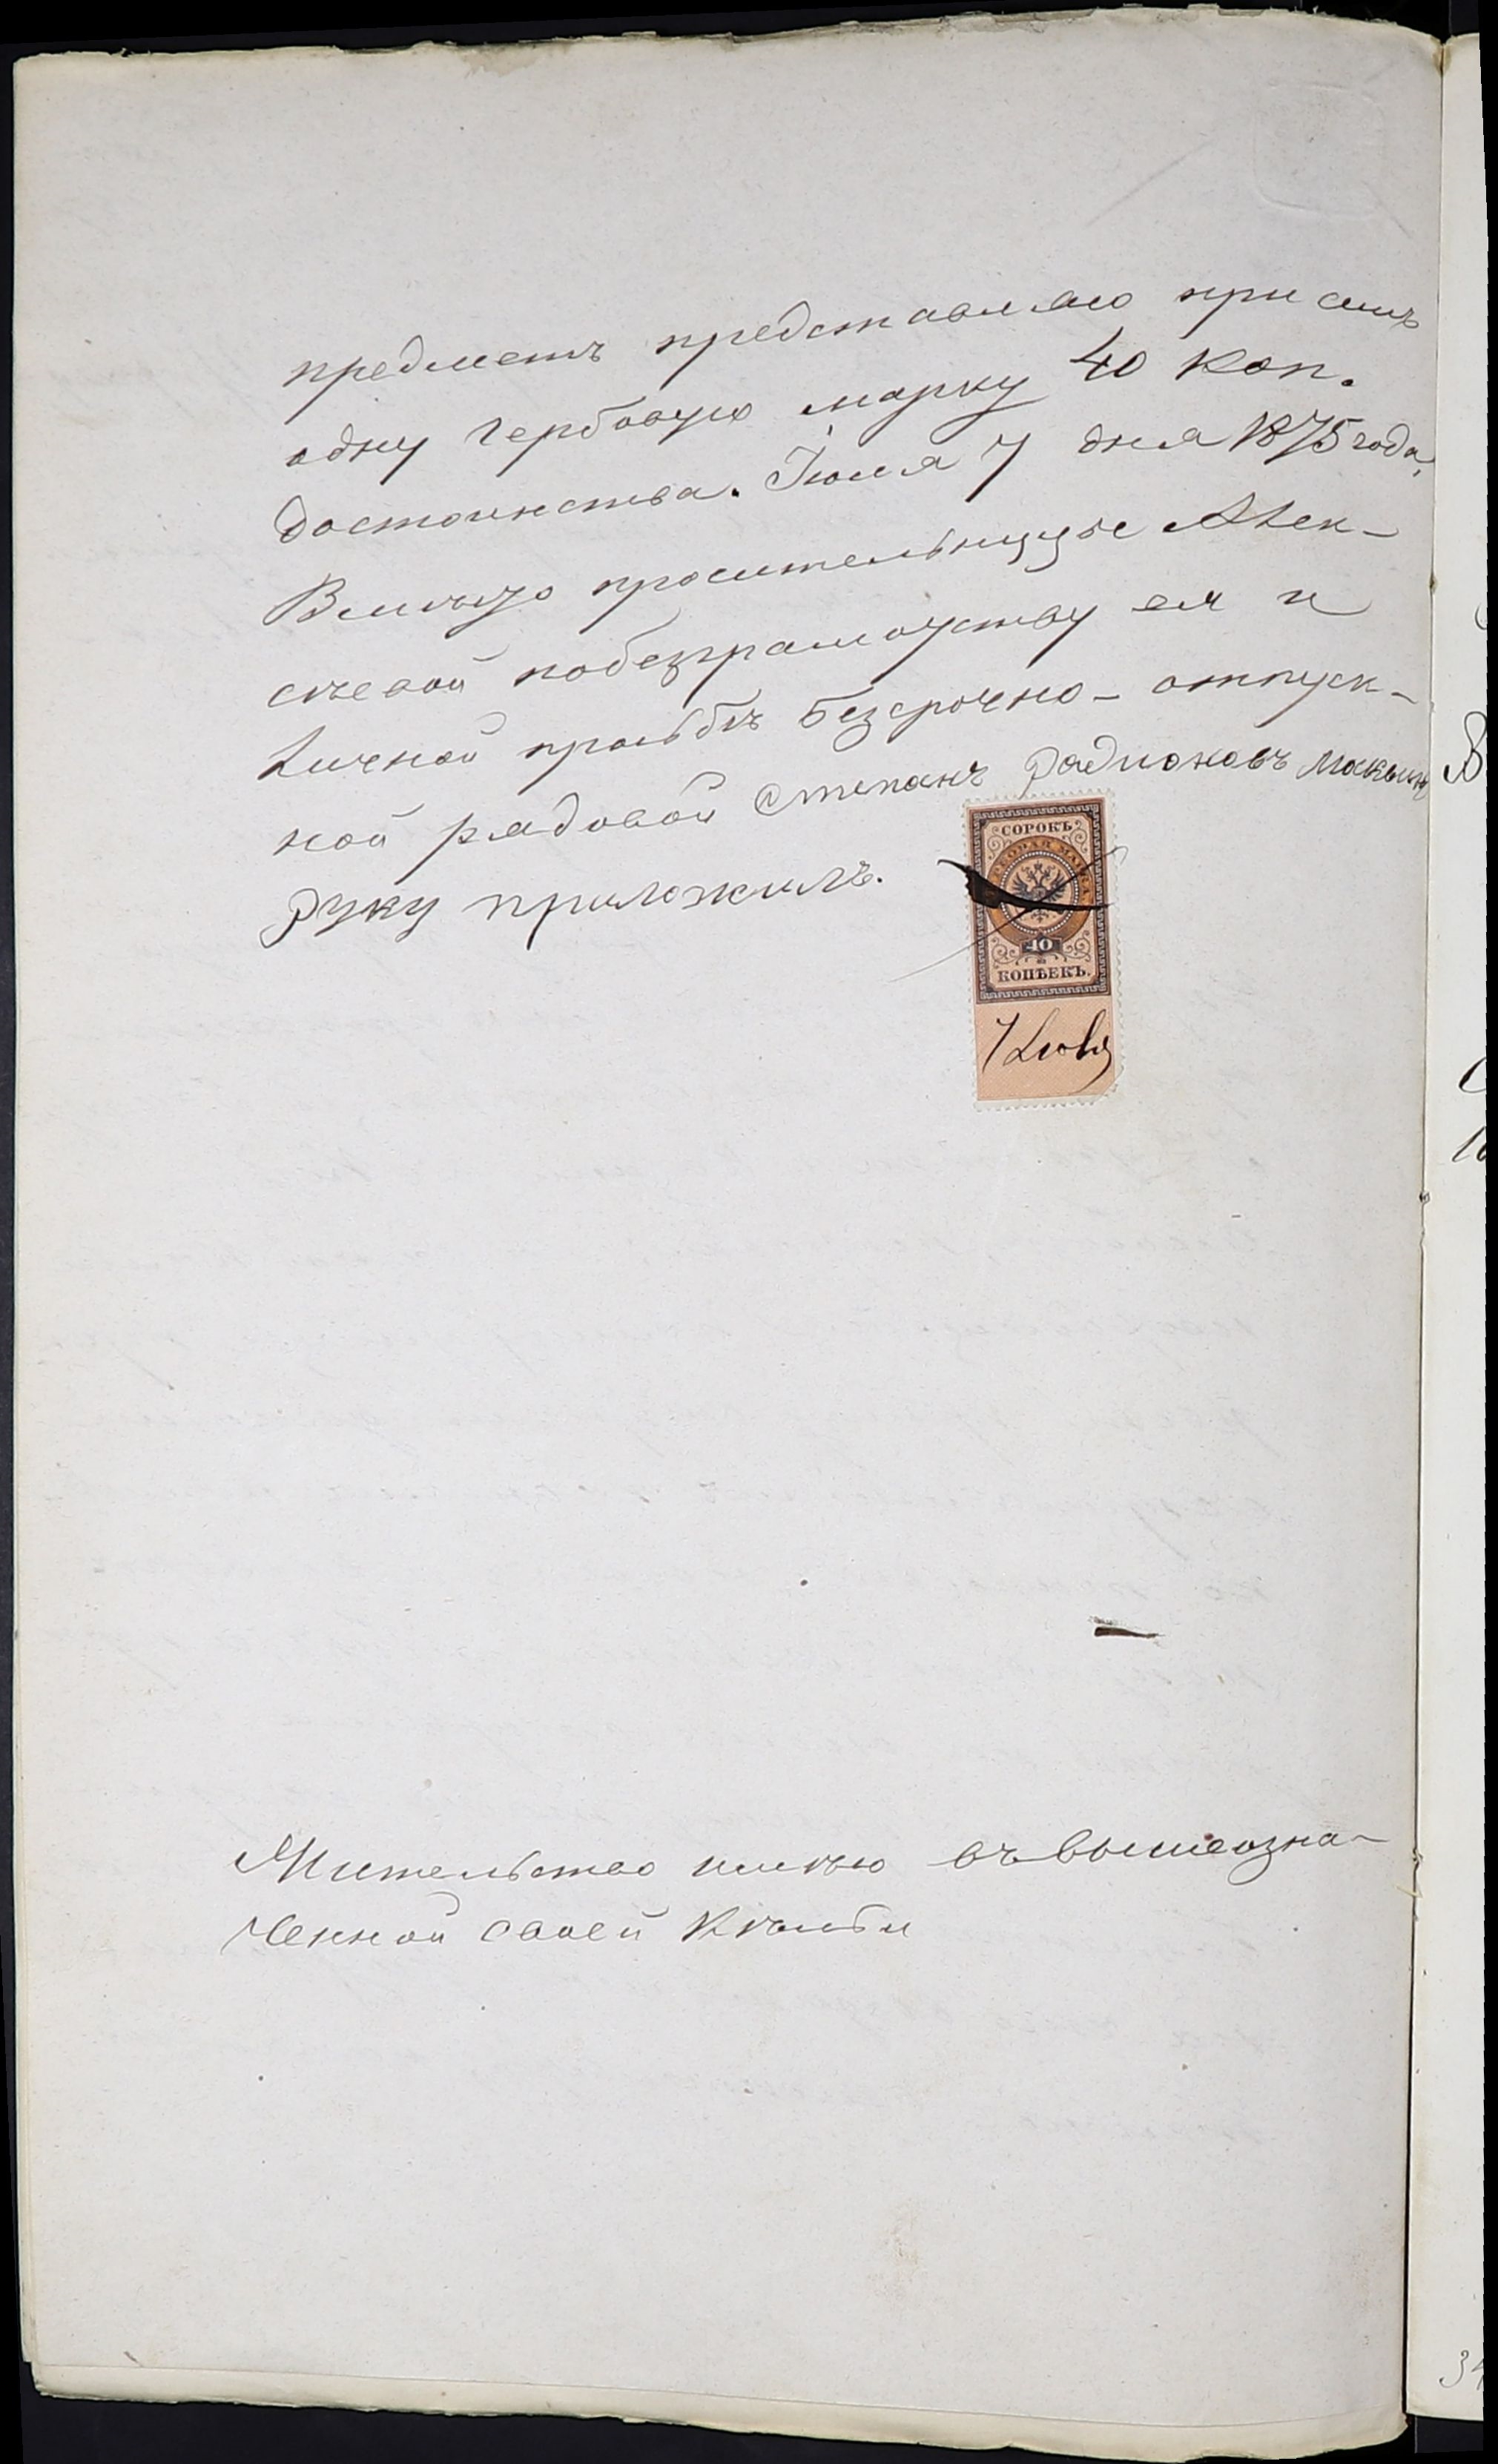 предметъ представляю при семъ
одну гербовую марку 40 коп.
достоинства. Іюля 7 дня 1875 года,
Вмисто просительницы Алек-
сѣевой побезграмотству ея и
личной прозьбѣ безсрочно-отпуск-
ной рядовой Степанъ Радионовъ
руку приложилъ.
СОРОКЪ
ГЕРБОВАЯ МАРКА
40
КОПѢЕКЪ.
7 Июля
Жительство имѣю въ вышеозна-
ченной своей